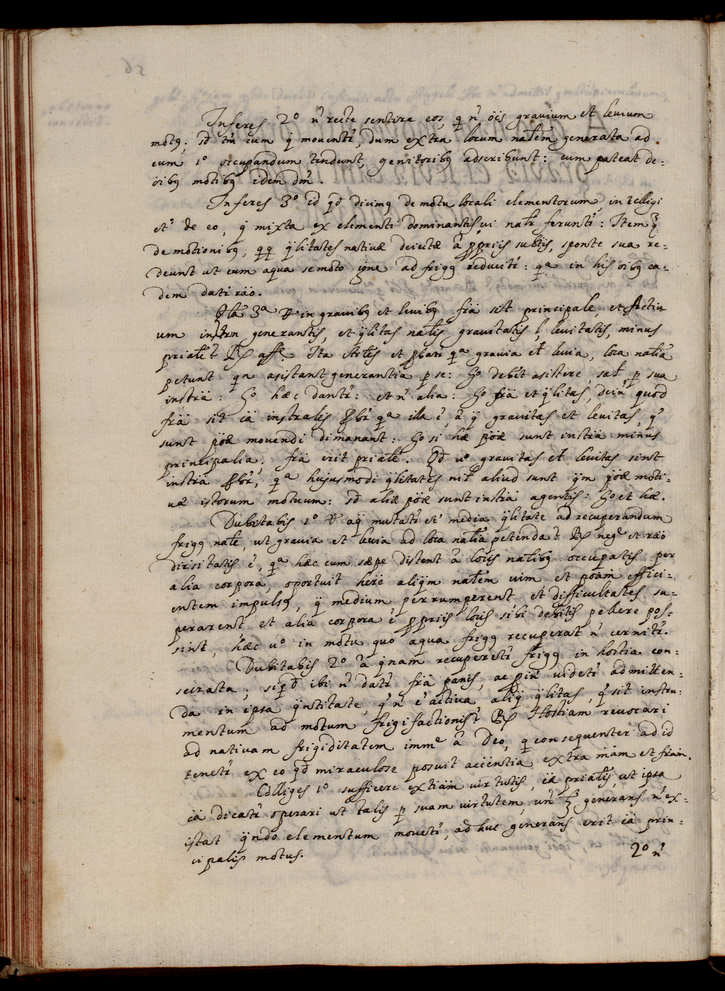 Inferes 2º ñ recte sentire eos, q̃ ñ õis gravium et levium
motq; sed tm̃ eum q̃ mouentr̃, dum extra locum natẽm generata ad
eum 1º occupandum tendunt, genitoribq adscribunt: cum pateat de
õibq motibq idem dm̃.
Inferes 3º id qd̃ dicimq de motu locali elementorum intelligi
etº de eo, q̃ mixta ex elementi dominantis vi natr̃ feruntr̃: Item
de motionibq, qq̃ q̃litates nativæ deiectæ à ppriis subtis, sponte sua re-
deunt ut cum aqua semoto igne ad frigq reducitr̃: qª in his õibq ea-
dem datr rão.
3ª in gravibq et levibq frã est principale, et Activ
um instrm generantis, et q̃litas natlis gravitatis, l levitatis, minus
priale Ita Artles et qª gravia et levia, loca natlia
petunt qn asistant generantia p se: Go debẽt asistere salt p sua
instrã: Go hæc dantr̃: et ñ alia: Go frã et q̃litas, dein quod
frã sit cã instralis qª illa ẽ, à q̃ gravitas et levitas, q̃
sunt põæ movendi dimanant: Go si hæ põæ sunt instrã minus
principalia, frã erit priale. Qd vº gravitas et levitas sint
instrã qª hujusmodi q̃litates nil aliud sunt qm põæ moti-
væ istorum motuum: sed aliæ põæ sunt instrã agentis: Go et hæ.
Dubitabis 1º aq mutatr etº media q̃litate ad recuperandum
frigq natle, ut gravia et levia ad loca natlia petenda? negº et rão
dirsitatis ẽ, qª hæc cum sæpe distent à locis natlibq occupatis per
alia corpora, oportuit here aliqm natlem vim et põam effici-
entem impulsq, q̃ medium perrumperent et difficultates su-
perarent, et alia corpora è ppriis locis sibi debitis pellere pos-
sint, hæc vº in motu quo aqua frigq recuperat ñ cernitr̃.
Dubitabis 2º à qnam recuperetr frigq in hostia con-
secrata, siqd ibi ñ datr frã panis, ac pin videtr admitten-
da in ipsa qntitate q̃ ñ ẽ activa, aliq q̃litas, q̃ sit instru-
mentum ad motum frigifactionis? Hostiam revocari
ad nativam frigiditatem imme à Deo, q̃ consequenter ad id
tenetr ex eo qd miraculose posuit accentia extra mãm et frãm.
Colliges 1º sufficere extiam virtutis, cæ prialis, ut ipsa
cã dicatr operari ut talis p suam virtutem, un generans ñ ex-
istat qndo elementum movetr, ad huc generans erit cã prin-
cipalis motus.
2º ñ